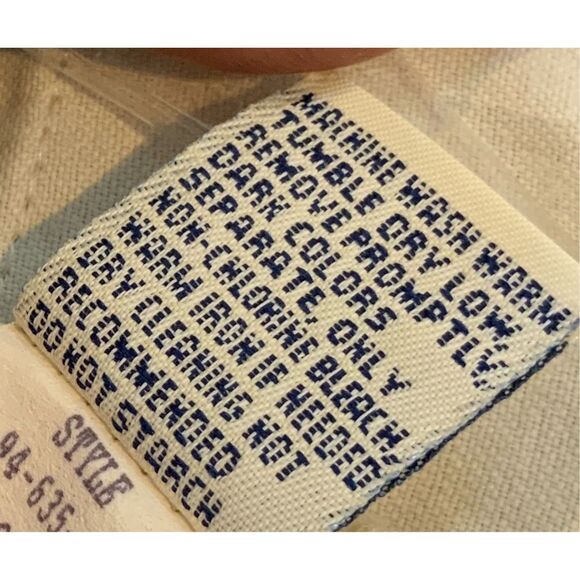 MACHINE WASH WARM
TUMBLE DRY LOW
REMOVE PROMPTLY
DARK COLORS
SEPARATE ONLY
NON-CHLORINE BLEACH
WARM IRON IF NEEDED
DRY CLEANING NOT
RECOMMENDED
DO NOT STARCH
STYLE
94-635